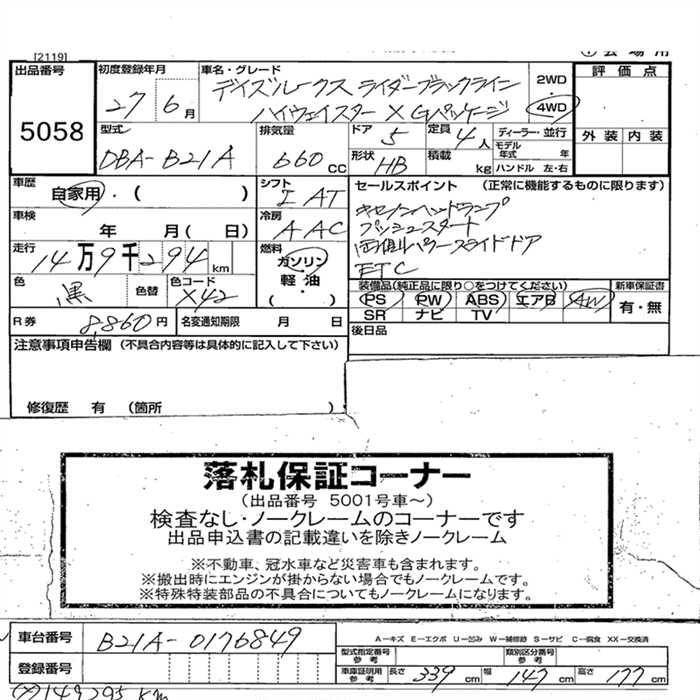 [2119]
出品番号 初度登録年月 車名・グレード 評価点
5058
27年6月
デイズルークス ライダーブラックライン
ハイウェイスター X Gパッケージ
2WD
4WD
型式 排気量 ドア 定員 ディーラー・並行 外装 内装
DBA-B21A 660CC 5 4人 モデル年式 年
形状 HB 積載 kg ハンドル 左・右
車歴 自家用・( ) シフト I AT セールスポイント (正常に機能するものに限ります)
車検 年 月( 日) 冷房 AAC
キセノンヘッドランプ
プッシュスタート
両側パワースライドドア
ETC
走行 14万9千294km 燃料 ガソリン
軽油
( ・ )
色 黒 色替 色コード X42
装備品(純正品に限り○をつけてください) 新車保証書
PS PW ABS エアB AW 有・無
SR ナビ TV
R券 8,860円 名変通知期限 月 日
後日品
注意事項申告欄 (不具合内容等は具体的に記入して下さい)
修復歴 有 (箇所 )
落札保証コーナー
(出品番号 5001号車~)
検査なし・ノークレームのコーナーです
出品申込書の記載違いを除きノークレーム
※不動車、冠水車など災害車も含まれます。
※搬出時にエンジンが掛からない場合でもノークレームです。
※特殊特装部品の不具合についてもノークレームになります。
車台番号 B21A-0176849
A-キズ E-エクボ U-凹み W-補修跡 S-サビ C-腐食 XX-交換済
型式指定番号 参考 類別区分番号 参考
登録番号
車庫証明用 参考 長さ 339cm 幅 147cm 高さ 177cm
149295 KM